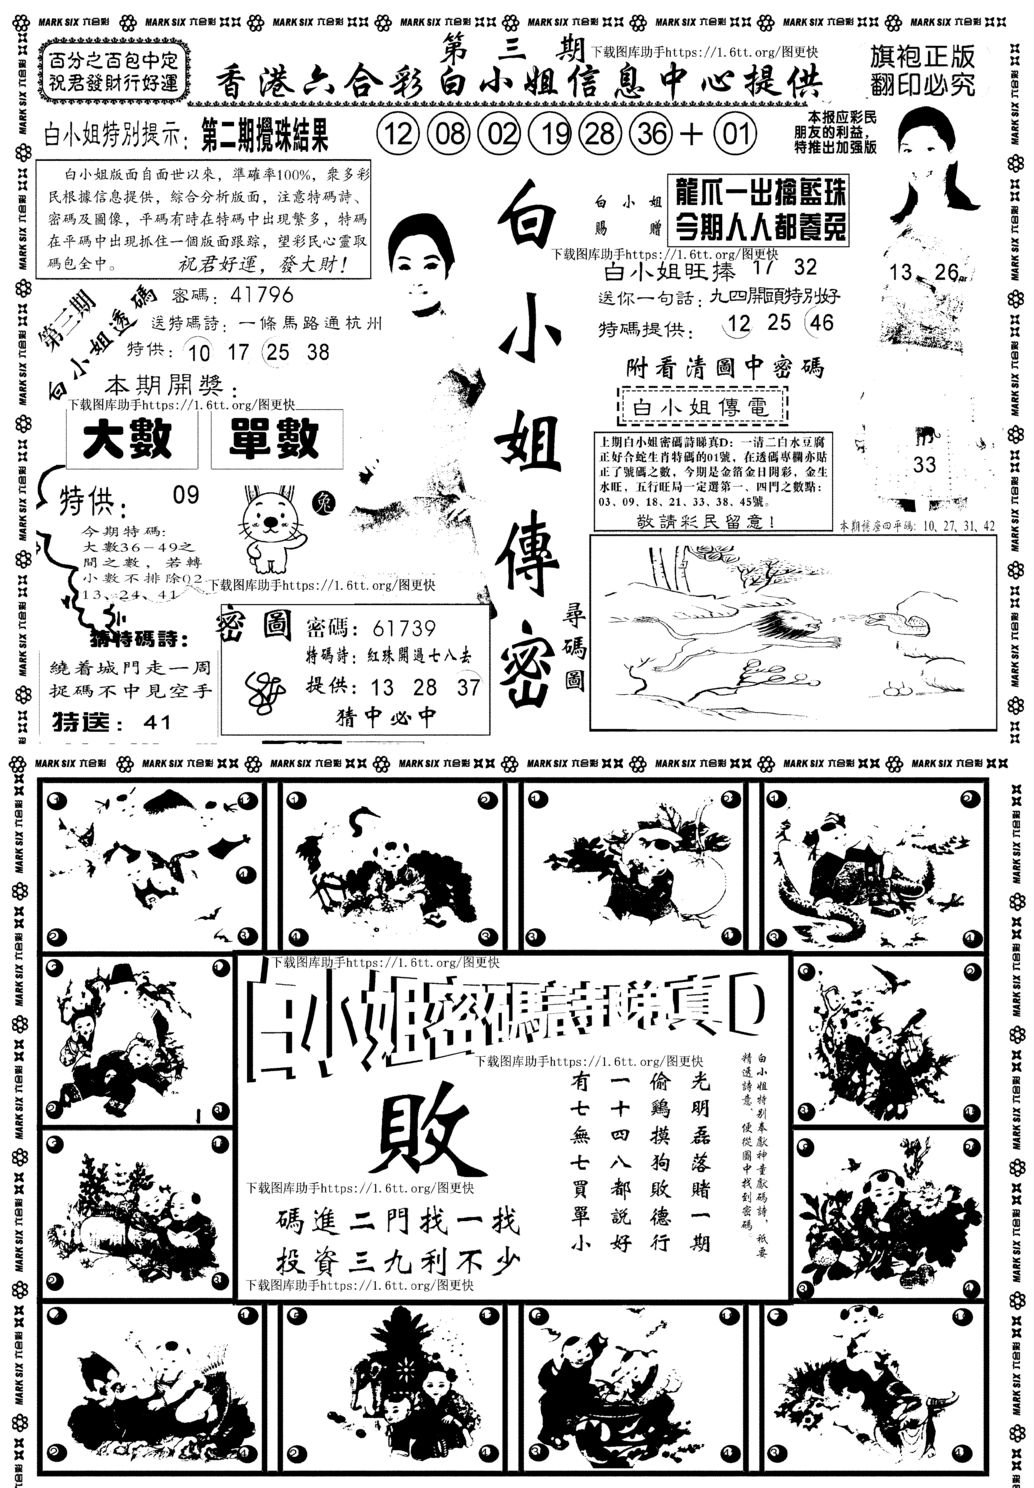 MARK SIX 六合彩
百分之百包中定
祝君發財行好運
第三期
下载图库助手https://1.6tt.org/图更快
香港六合彩白小姐信息中心提供
旗袍正版
翻印必究
白小姐特別提示：第二期攪珠結果
12 08 02 19 28 36 + 01
本报应彩民
朋友的利益,
特推出加强版
白小姐版面自面世以來，準確率100%，衆多彩
民根據信息提供，綜合分析版面，注意特碼詩、
密碼及圖像，平碼有時在特碼中出現繁多，特碼
在平碼中出現抓住一個版面跟踪，望彩民心靈取
碼包全中。 祝君好運，發大財！
第三期
白小姐透碼
密碼：41796
送特碼詩：一條馬路通杭州
特供：10 17 25 38
本期開獎：
下载图库助手https://1.6tt.org/图更快
大數 單數
特供： 09
兔
今期特碼：
大數36-49之
間之數，若轉
小數不排除02
13、24、41
下载图库助手https://1.6tt.org/图更快
猜特碼詩：
繞着城門走一周
捉碼不中見空手
特送：41
密圖
密碼：61739
特碼詩：紅珠開過七八去
提供：13 28 37
猜中必中
白小姐傳密
白小姐
賜贈
龍爪一出擒藍珠
今期人人都養兔
下载图库助手https://1.6tt.org/图更快
白小姐旺捧 17 32
送你一句話：九四開頭特別好
特碼提供：12 25 46
附看清圖中密碼
白小姐傳電
上期白小姐密碼詩睇真D：一清二白水豆腐
正好合蛇生肖特碼的01號，在透碼專欄亦貼
正了號碼之數，今期是金箔金日開彩，金生
水旺，五行旺局一定選第一、四門之數點：
03、09、18、21、33、38、45號。
敬請彩民留意！
13 26
33
本期穩座四平碼：10、27、31、42
尋碼圖
MARK SIX 六合彩
下载图库助手https://1.6tt.org/图更快
白小姐密碼詩睇真D
下载图库助手https://1.6tt.org/图更快
白小姐特别奉獻神童獻碼詩，祇要
精透詩意，便從圖中找到密碼。
光明磊落賭一期
偷鷄摸狗敗德行
一十四八都説好
有七無七買單小
敗
下载图库助手https://1.6tt.org/图更快
碼進二門找一找
投資三九利不少
下载图库助手https://1.6tt.org/图更快